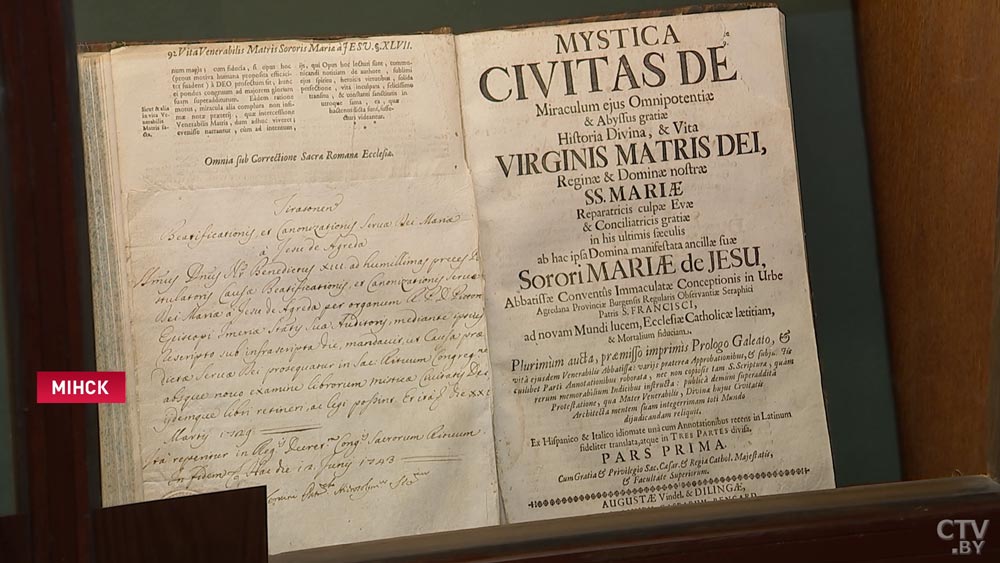 92 Vita Venerabilis Matris Sororis Mariæ à JESU. §. XLVII.
num magis; cum fiducia, si opus hoc
(prout motiva humana proposita efficaci-
ter suadent) à DEO profectum sit, hunc
ei pondus congruum ad majorem gloriam
suam superadditurum. Eâdem ratione
motus, miracula alia complura non infi-
mæ notæ præterij, quæ intercessione
Venerabilis Matris, dum adhuc viveret;
evenisse narrantur, cùm ad intentum,
Sicut & alia
in vita Ve-
nerabilis
Matris fa-
cta.
ejus, qui Opus hoc lecturi sunt, commu-
nicandi notitiam de authore, sublimi
ejus spiritu, heroicis virtutibus, solida
perfectione, vita inculpata, felicissimo
transitu, & constanti sanctitatis in
utroque fama, ea, quæ
hactenus dicta sunt, suffe-
ctura videantur.
Omnia sub Correctione Sacræ Romanæ Ecclesiæ.
Tirasonen
Beatificationis et Canonizationis Servæ Dei Mariæ
à Jesu de Agreda
Benedictus XIII. ad humillimas preces
Causæ Beatificationis, et Canonizationis Servæ
Dei Mariæ à Jesu de Agreda per organum
Episcopi
sub infrascripta die, mandavit, ut Causa præ
dictæ Servæ Dei prosequatur in Sac. Rituum Congreg.ne
absque novo examine librorum misticæ Civitatis Dei
ijdemque libri retineri, ac legi possint
Martij 1729
Ita reperitur in Sacrorum Rituum
In fidem Hac die 12 Juny 1743
MYSTICA
CIVITAS DE
Miraculum ejus Omnipotentiæ
& Abyssus gratiæ
Historia Divina, & Vita
VIRGINIS MATRIS DEI,
Reginæ & Dominæ nostræ
SS. MARIÆ
Reparatricis culpæ Evæ
& Conciliatricis gratiæ
in his ultimis sæculis
ab hac ipsa Domina manifestata ancillæ suæ
Sorori MARIÆ de JESU,
Abbatissæ Conventûs Immaculatæ Conceptionis in Urbe
Agredana Provinciæ Burgensis Regularis Observantiæ Seraphici
Patris S. FRANCISCI,
ad novam Mundi lucem, Ecclesiæ Catholicæ lætitiam,
& Mortalium fiduciam.
Plurimùm aucta, præmisso imprimis Prologo Galeato, &
vitâ ejusdem Venerabilis Abbatissæ: varijs præterea Approbationibus, & subju
cuilibet Parti Annotationibus roborata, nec non copiosis tam S. Scripturæ, quàm
rerum memorabilium Indicibus instructa: publicâ demùm superadditâ
Protestatione, qua Mater Venerabilis, Divinæ hujus Civitatis
Architecta mentem suam integerrimam toti Mundo
dijudicandam reliquit.
Ex Hispanico & Italico idiomate unà cum Annotationibus recens in Latinum
fideliter translata, atque in TRES PARTES divisa,
PARS PRIMA.
Cum Gratia & Privilegio Sac. Cæsar. & Regiæ Cathol. Majestatis,
& Facultate Superiorum.
AUGUSTÆ Vindel. & DILINGÆ,
МІНСК
CTV
.BY